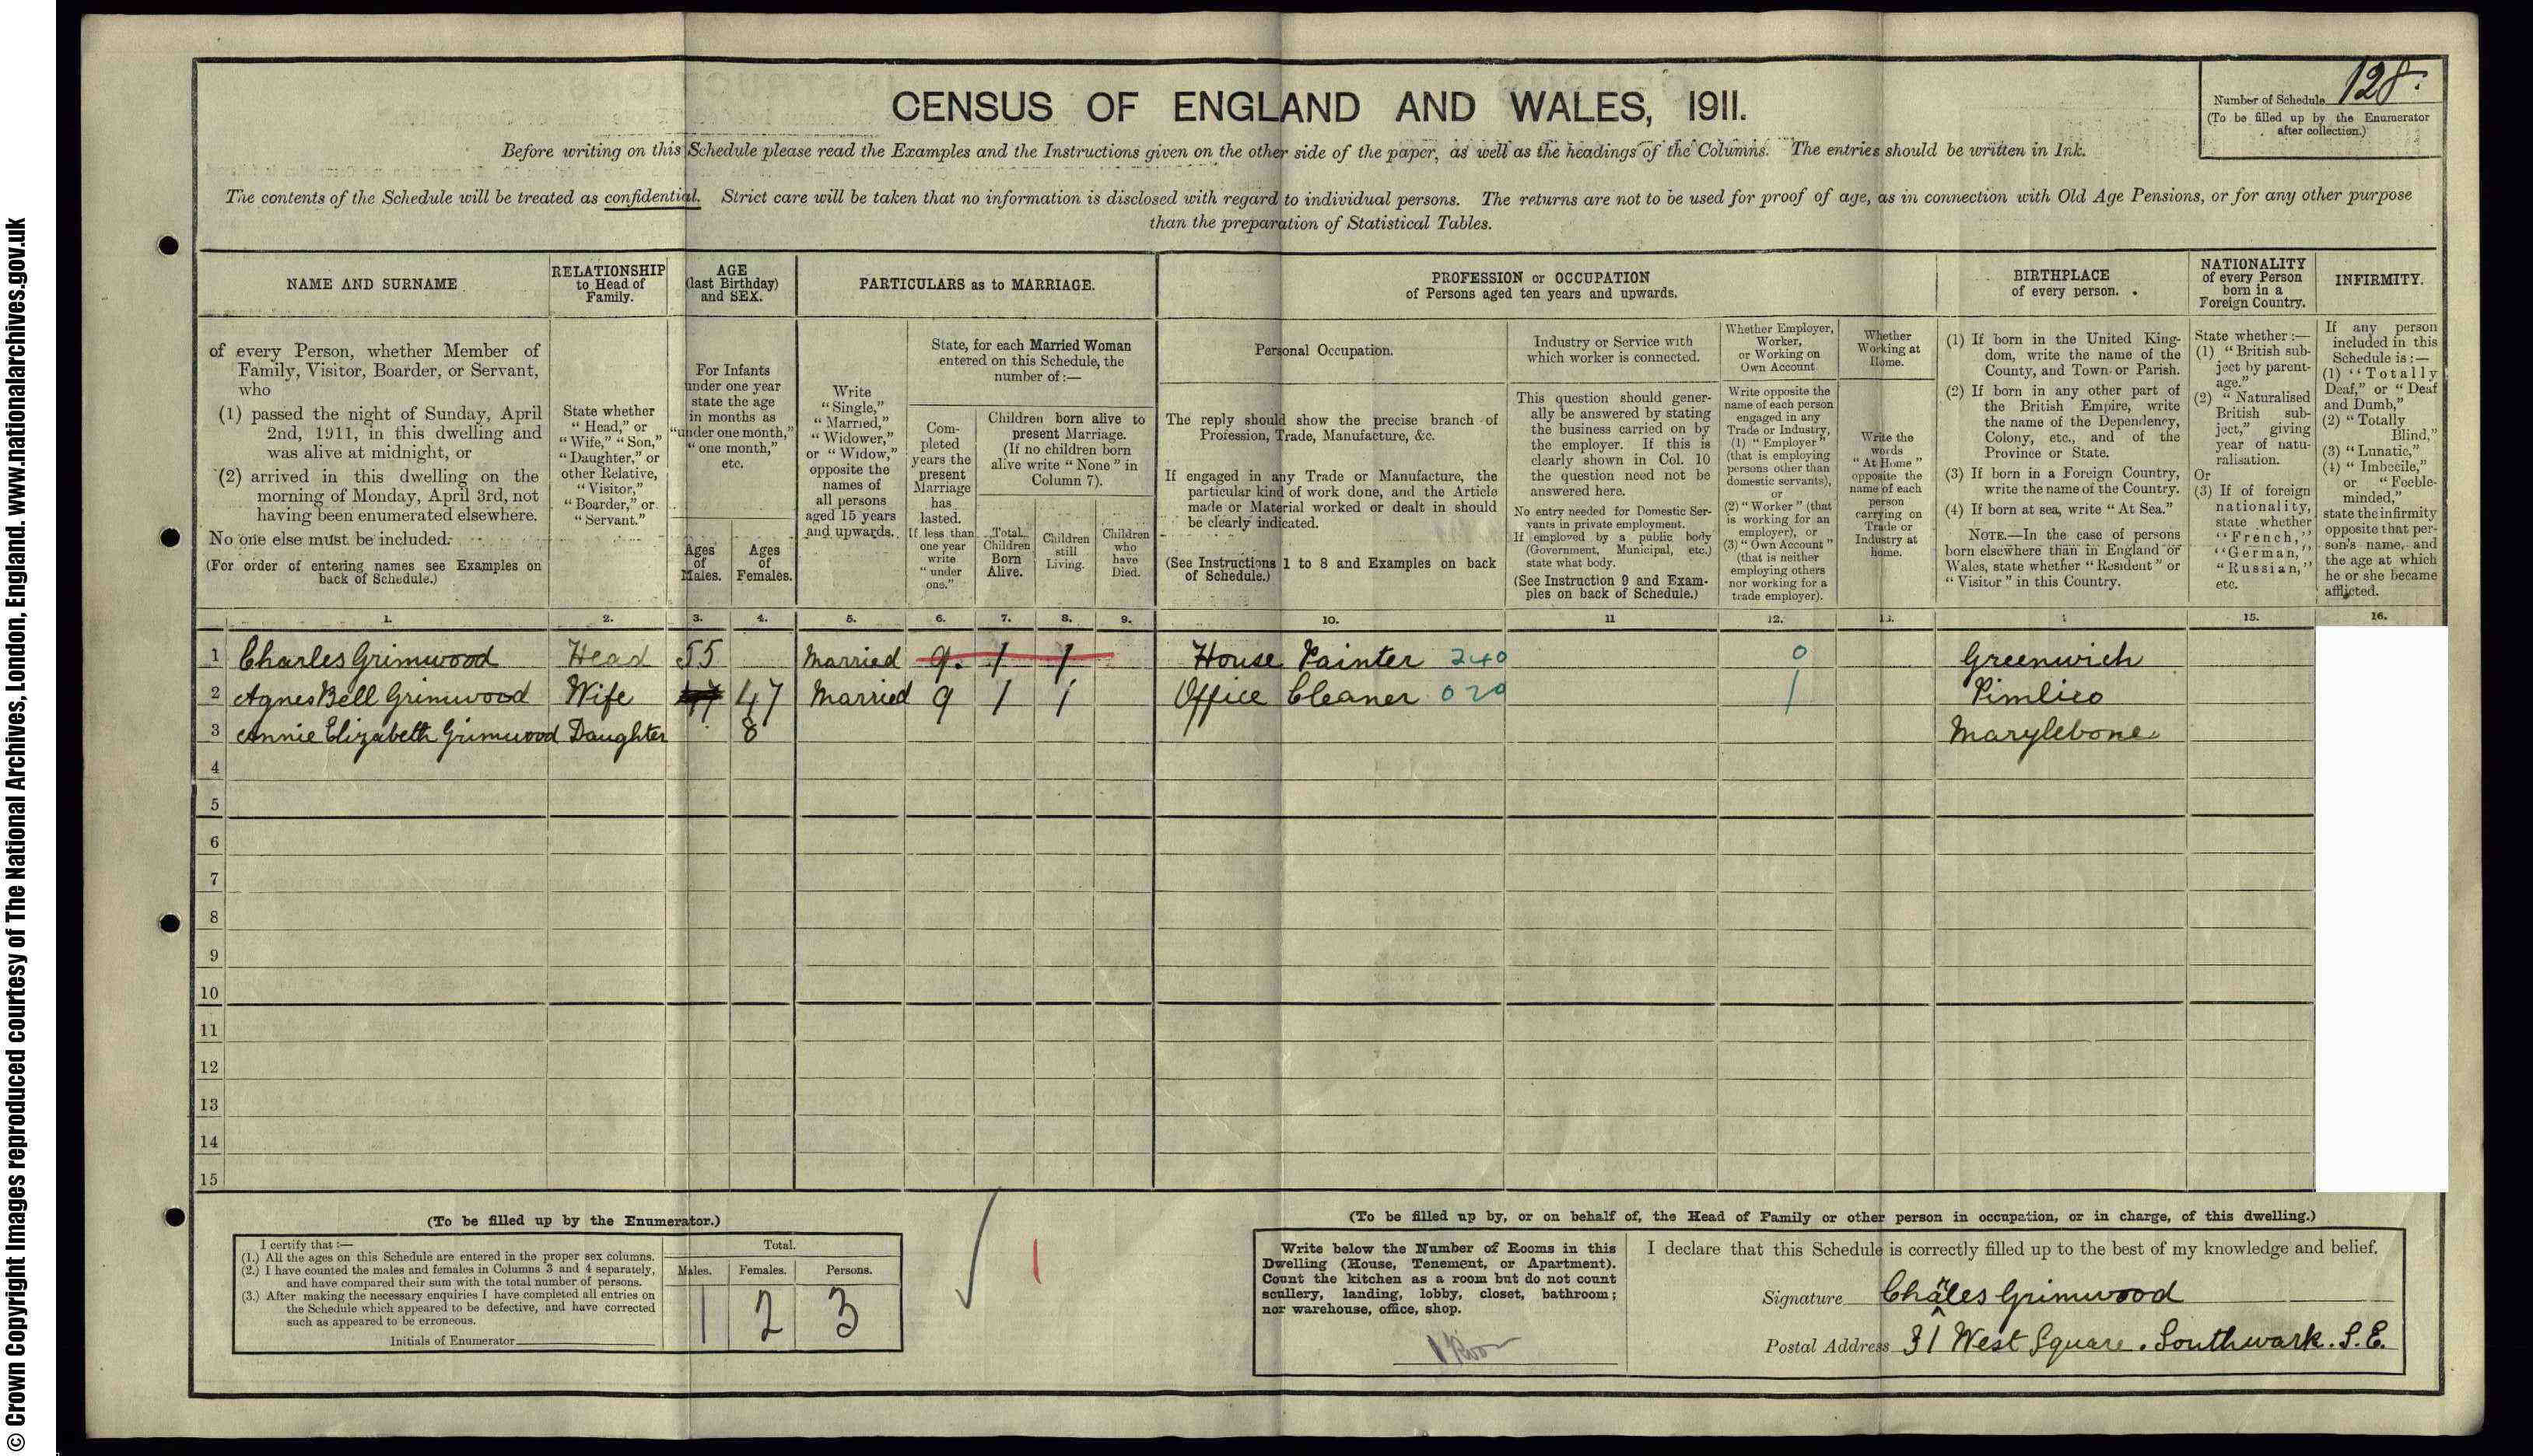 © Crown Copyright Images reproduced courtesy of The National Archives, London, England. www.nationalarchives.gov.uk
CENSUS OF ENGLAND AND WALES, 1911.
Number of Schedule 128.
(To be filled up by the Enumerator
after collection.)
Before writing on this Schedule please read the Examples and the Instructions given on the other side of the paper, as well as the headings of the Columns. The entries should be written in Ink.
The contents of the Schedule will be treated as confidential. Strict care will be taken that no information is disclosed with regard to individual persons. The returns are not to be used for proof of age, as in connection with Old Age Pensions, or for any other purpose
than the preparation of Statistical Tables.
NAME AND SURNAME
of every Person, whether Member of
Family, Visitor, Boarder, or Servant,
who
(1) passed the night of Sunday, April
2nd, 1911, in this dwelling and
was alive at midnight, or
(2) arrived in this dwelling on the
morning of Monday, April 3rd, not
having been enumerated elsewhere.
No one else must be included.
(For order of entering names see Examples on
back of Schedule.)
RELATIONSHIP
to Head of
Family.
State whether
"Head," or
"Wife," "Son,"
"Daughter," or
other Relative,
"Visitor,"
"Boarder," or
"Servant."
AGE
(last Birthday)
and SEX.
For Infants
under one year
state the age
in months as
"under one month,"
"one month,"
etc.
Ages
of
Males.
Ages
of
Females.
PARTICULARS as to MARRIAGE.
Write
"Single,"
"Married,"
"Widower,"
or "Widow,"
opposite the
names of
all persons
aged 15 years
and upwards.
State, for each Married Woman
entered on this Schedule, the
number of :—
Com-
pleted
years the
present
Marriage
has
lasted.
If less than
one year
write
"under
one."
Children born alive to
present Marriage.
(If no children born
alive write "None" in
Column 7).
Total
Children
Born
Alive.
Children
still
Living.
Children
who
have
Died.
PROFESSION or OCCUPATION
of Persons aged ten years and upwards.
Personal Occupation.
The reply should show the precise branch of
Profession, Trade, Manufacture, &c.
If engaged in any Trade or Manufacture, the
particular kind of work done, and the Article
made or Material worked or dealt in should
be clearly indicated.
(See Instructions 1 to 8 and Examples on back
of Schedule.)
Industry or Service with
which worker is connected.
This question should gener-
ally be answered by stating
the business carried on by
the employer. If this is
clearly shown in Col. 10
the question need not be
answered here.
No entry needed for Domestic Ser-
vants in private employment.
If employed by a public body
(Government, Municipal, etc.)
state what body.
(See Instruction 9 and Exam-
ples on back of Schedule.)
Whether Employer,
Worker,
or Working on
Own Account.
Write opposite the
name of each person
engaged in any
Trade or Industry,
(1) "Employer"
(that is employing
persons other than
domestic servants),
or
(2) "Worker" (that
is working for an
employer), or
(3) "Own Account"
(that is neither
employing others
nor working for a
trade employer).
Whether
Working at
Home.
Write the
words
"At Home"
opposite the
name of each
person
carrying on
Trade or
Industry at
home.
BIRTHPLACE
of every person.
(1) If born in the United King-
dom, write the name of the
County, and Town or Parish.
(2) If born in any other part of
the British Empire, write
the name of the Dependency,
Colony, etc., and of the
Province or State.
(3) If born in a Foreign Country,
write the name of the Country.
(4) If born at sea, write "At Sea."
NOTE.—In the case of persons
born elsewhere than in England or
Wales, state whether "Resident" or
"Visitor" in this Country.
NATIONALITY
of every Person
born in a
Foreign Country.
State whether :—
(1) "British sub-
ject by parent-
age."
(2) "Naturalised
British sub-
ject," giving
year of natu-
ralisation.
Or
(3) If of foreign
nationality,
state whether
"French,"
"German,"
"Russian,"
etc.
INFIRMITY.
If any person
included in this
Schedule is :—
(1) "Totally
Deaf," or "Deaf
and Dumb,"
(2) "Totally
Blind,"
(3) "Lunatic,"
(4) "Imbecile,"
or "Feeble-
minded,"
state the infirmity
opposite that per-
son's name, and
the age at which
he or she became
afflicted.
1. 2. 3. 4. 5. 6. 7. 8. 9. 10. 11 12. 13. 15. 16.
1 Charles Grimwood Head 55 Married 9. 1 1 House Painter 240 0 Greenwich
2 Agnes Bell Grimwood Wife 47 47 Married 9 1 1 Office Cleaner 020 1 Pimlico
3 Annie Elizabeth Grimwood Daughter 8 Marylebone.
4
5
6
7
8
9
10
11
12
13
14
15
(To be filled up by the Enumerator.)
I certify that :—
(1.) All the ages on this Schedule are entered in the proper sex columns.
(2.) I have counted the males and females in Columns 3 and 4 separately,
and have compared their sum with the total number of persons.
(3.) After making the necessary enquiries I have completed all entries on
the Schedule which appeared to be defective, and have corrected
such as appeared to be erroneous.
Initials of Enumerator
Total.
Males. Females. Persons.
1 2 3
1
(To be filled up by, or on behalf of, the Head of Family or other person in occupation, or in charge, of this dwelling.)
Write below the Number of Rooms in this
Dwelling (House, Tenement, or Apartment).
Count the kitchen as a room but do not count
scullery, landing, lobby, closet, bathroom;
nor warehouse, office, shop.
1 Room
I declare that this Schedule is correctly filled up to the best of my knowledge and belief.
Signature Charles Grimwood
Postal Address 31 West Square. Southwark. S.E.